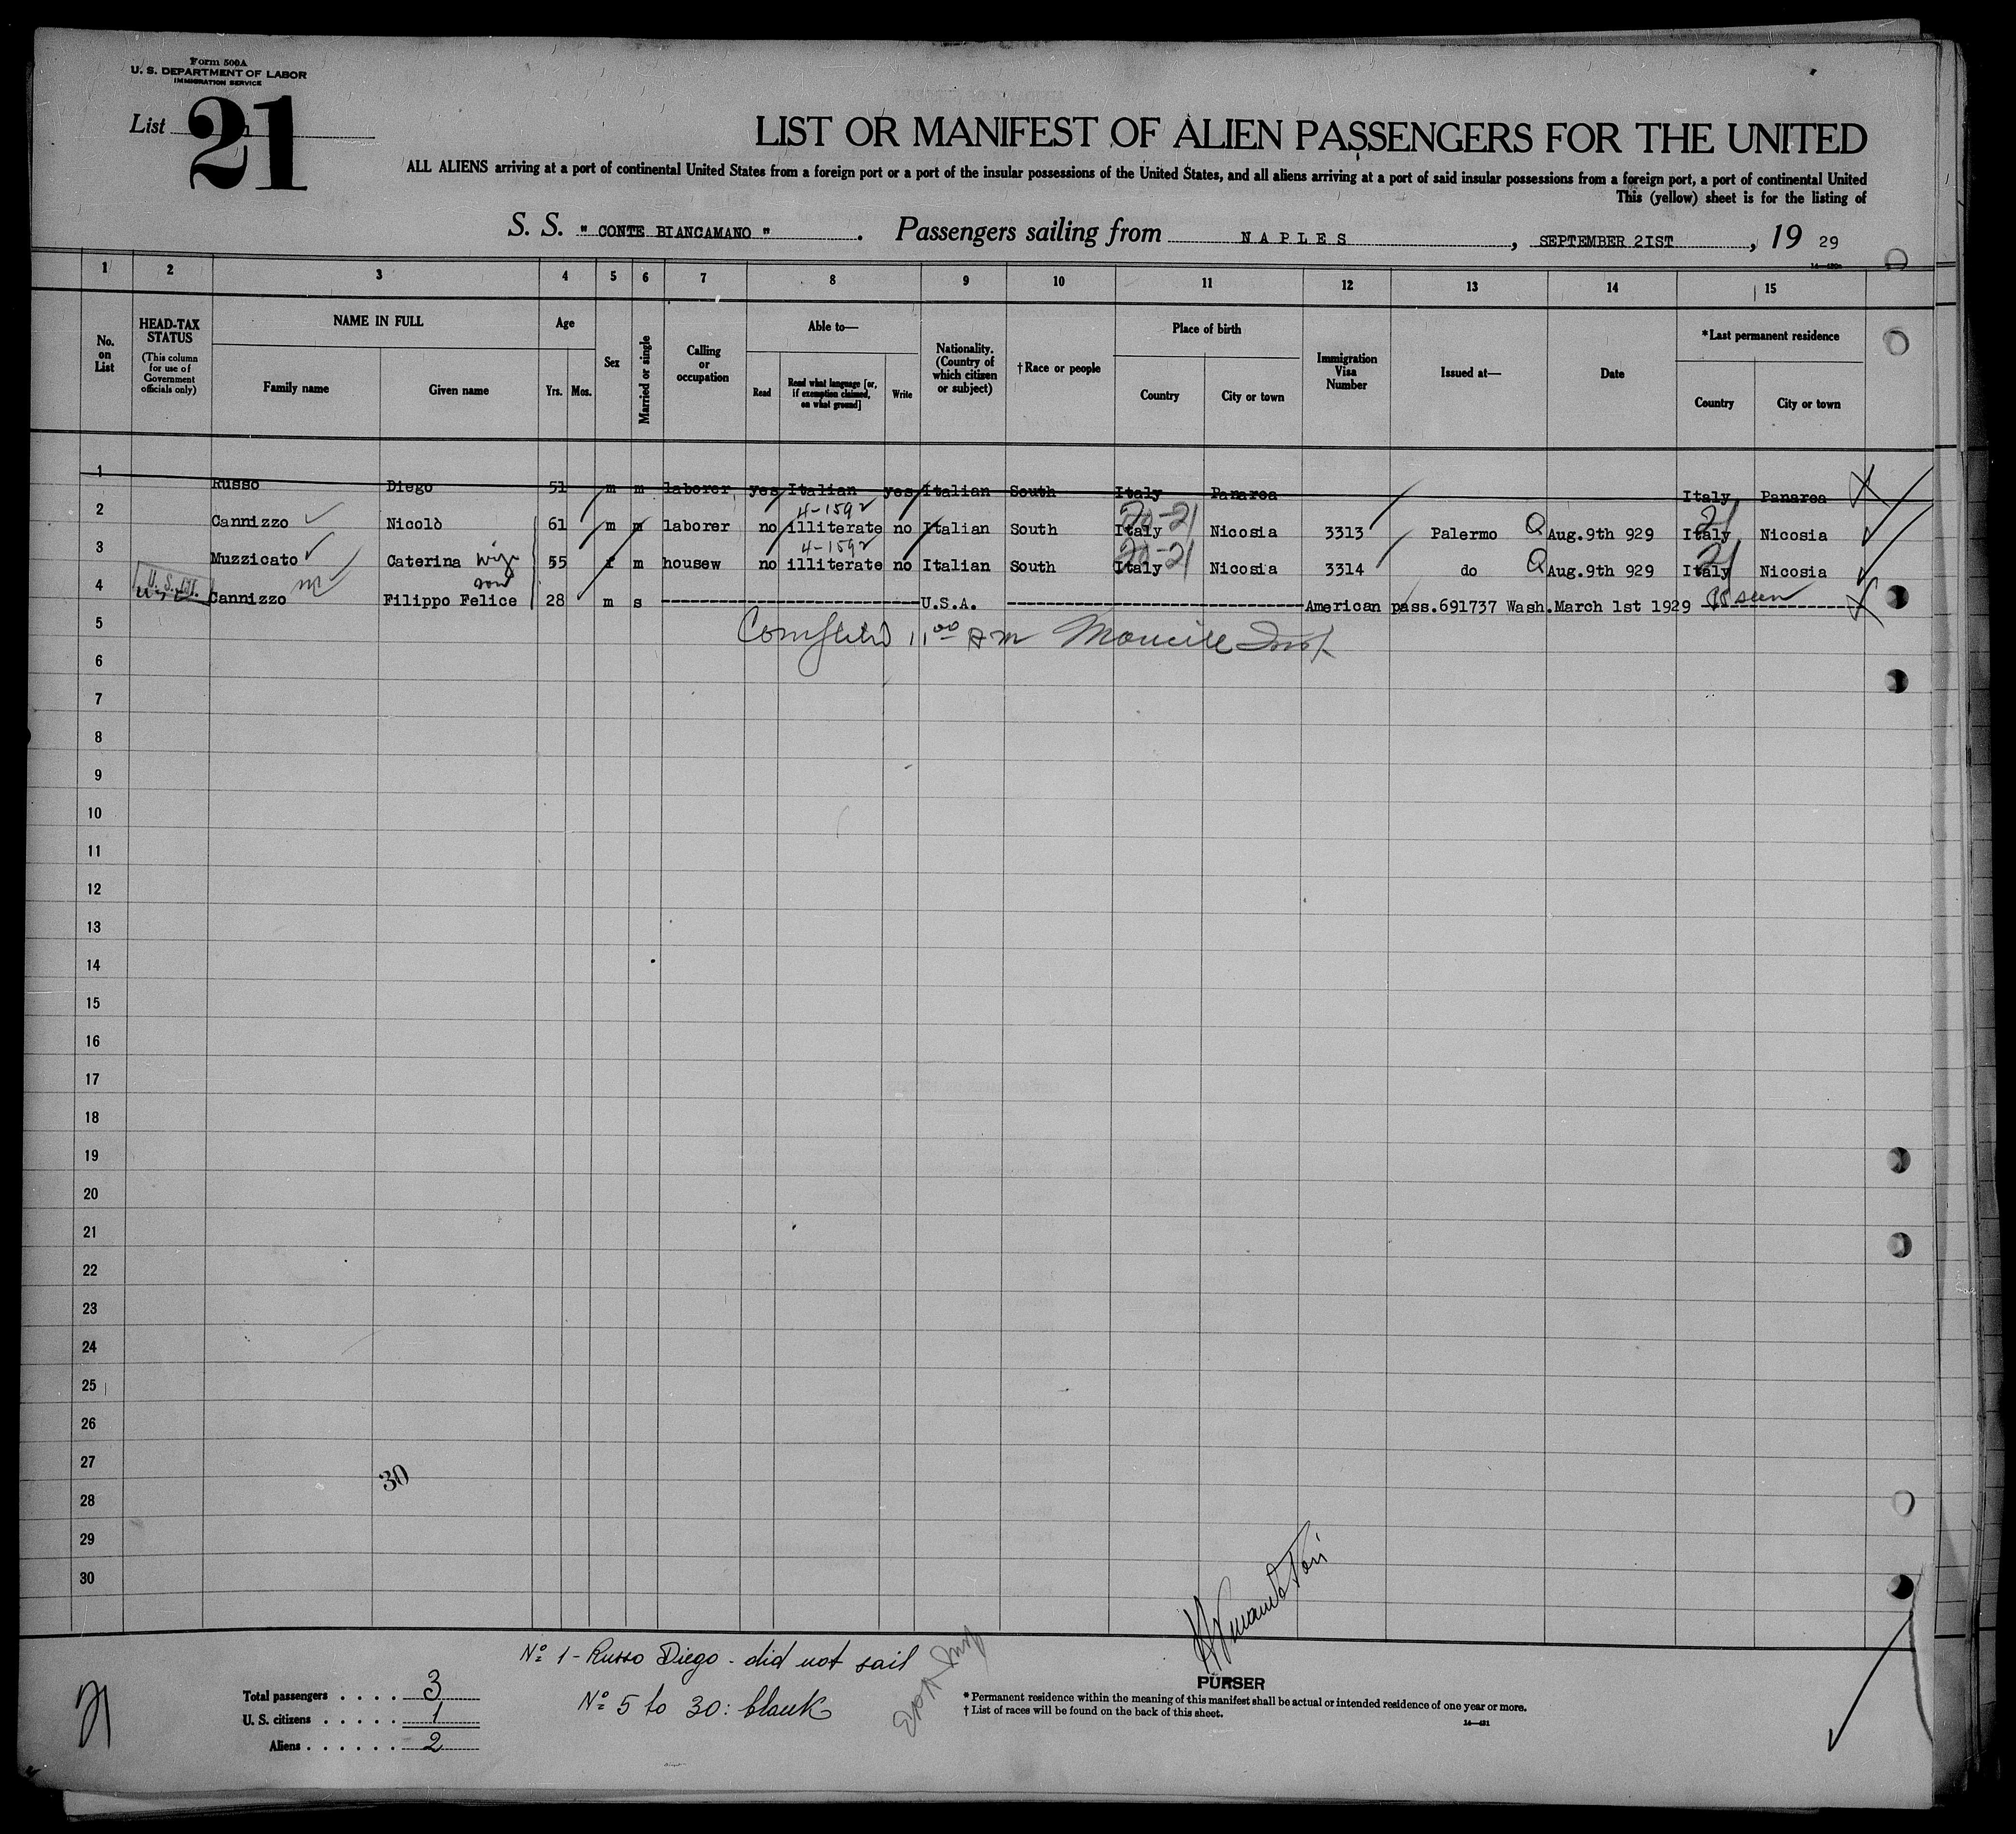 Form 500A
U. S. DEPARTMENT OF LABOR
IMMIGRATION SERVICE
List 21
LIST OR MANIFEST OF ALIEN PASSENGERS FOR THE UNITED
ALL ALIENS arriving at a port of continental United States from a foreign port or a port of the insular possessions of the United States, and all aliens arriving at a port of said insular possessions from a foreign port, a port of continental United
This (yellow) sheet is for the listing of
S. S. " CONTE BIANCAMANO " . Passengers sailing from NAPLES , SEPTEMBER 21ST , 19 29
1 2 3 4 5 6 7 8 9 10 11 12 13 14 15
No. on List
HEAD-TAX STATUS
(This column for use of Government officials only)
NAME IN FULL
Family name
Given name
Age
Yrs. Mos.
Sex
Married or single
Calling or occupation
Able to—
Read
Read what language [or, if exemption claimed, on what ground]
Write
Nationality. (Country of which citizen or subject)
† Race or people
Place of birth
Country
City or town
Immigration Visa Number
Issued at—
Date
*Last permanent residence
Country
City or town
1 Russo Diego 51 m m laborer yes Italian yes Italian South Italy Panarea Italy Panarea
4-1592 20-21 21
2 Cannizzo Nicolò 61 m m laborer no illiterate no Italian South Italy Nicosia 3313 Palermo Q Aug.9th 929 Italy Nicosia
4-1592 20-21 21
3 Muzzicato Caterina wife 55 f m housew no illiterate no Italian South Italy Nicosia 3314 do Q Aug.9th 929 Italy Nicosia
son
4 Cannizzo Filippo Felice 28 m s U.S.A. American pass.691737 Wash.March 1st 1929
5
6
7
8
9
10
11
12
13
14
15
16
17
18
19
20
21
22
23
24
25
26
27
30
28
29
30
No 1 - Russo Diego - did not sail
No 5 to 30: blank
Total passengers . . . . 3
U. S. citizens . . . . . 1
Aliens . . . . . . 2
21
PURSER
* Permanent residence within the meaning of this manifest shall be actual or intended residence of one year or more.
† List of races will be found on the back of this sheet.